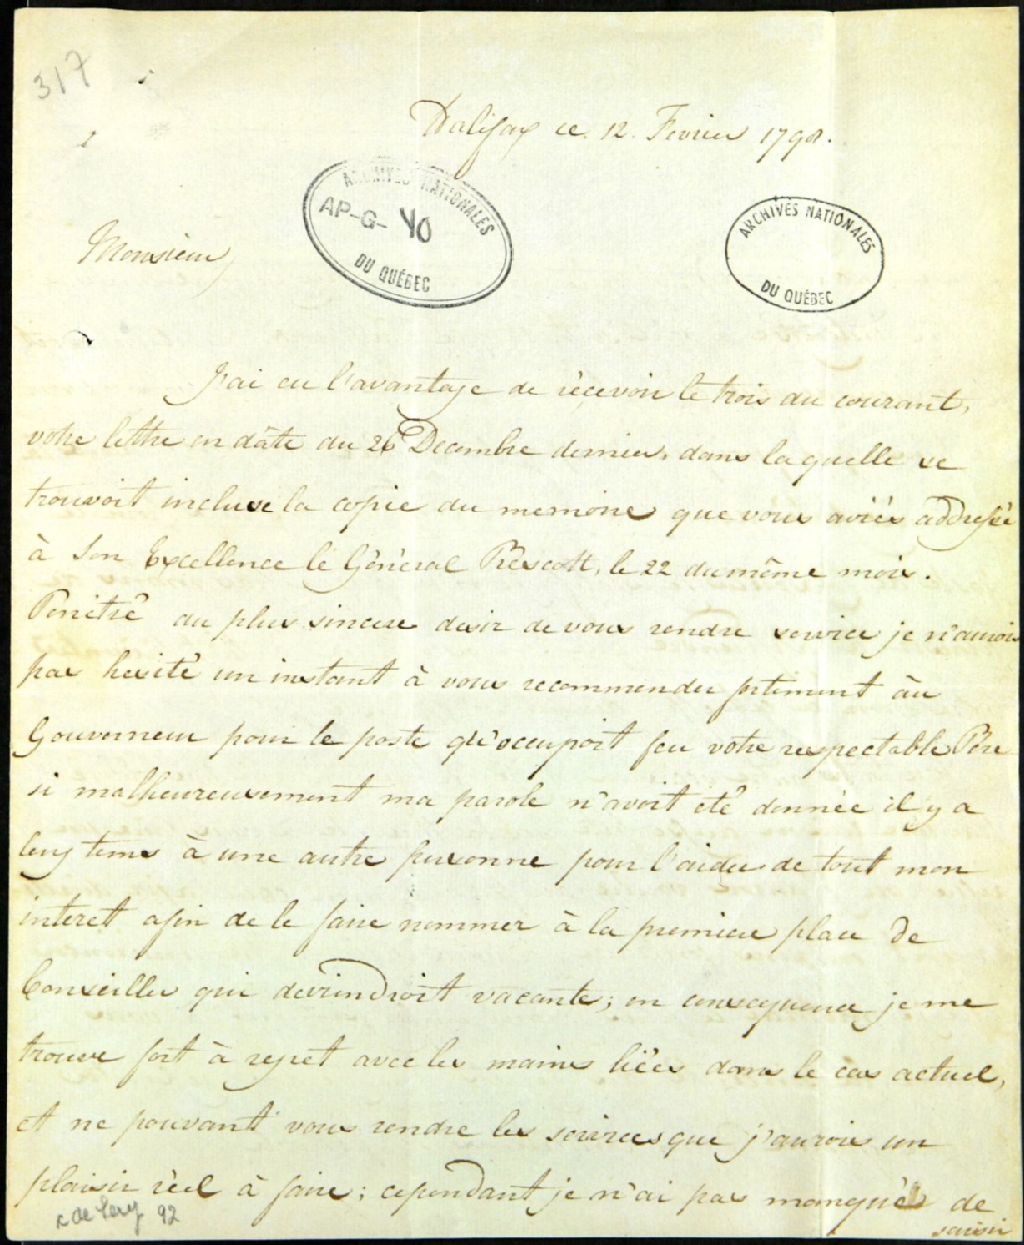 317
Halifax ce. 12. Fevrier 1798.
ARCHIVES NATIONALES
AP-G- 40
DU QUÉBEC
ARCHIVES NATIONALES
DU QUÉBEC
Monsieur,
J'ai eu l'avantage de récevoir le trois du courant,
votre lettre en dâte du 26 Decembre dernier, dans laquelle se
trouvoit incluse la copie du memoire que vous aviés addressé
à Son Excellence le Général Prescott, le 22 du même mois.
Penétré du plus sincere desir de vous rendre service je n'aurois
pas hesité un instant à vous recommender fortement âu
Gouverneur pour le poste qu'occupoit feu votre respectable Pére
si malheureusement ma parole n'avoit été donnée il y a
long tems à une autre personne pour l'aider de tout mon
interet afin de le faire nommer à la premiere place de
Conseiller qui deviendroit vacante; en consequence je me
trouve fort à regret avec les mains liées dans le cas actuel,
et ne pouvant vous rendre les services que j'aurois un
plaisir réel à faire; cependant je n'ai pas manqué de
savoir
de Lery 92